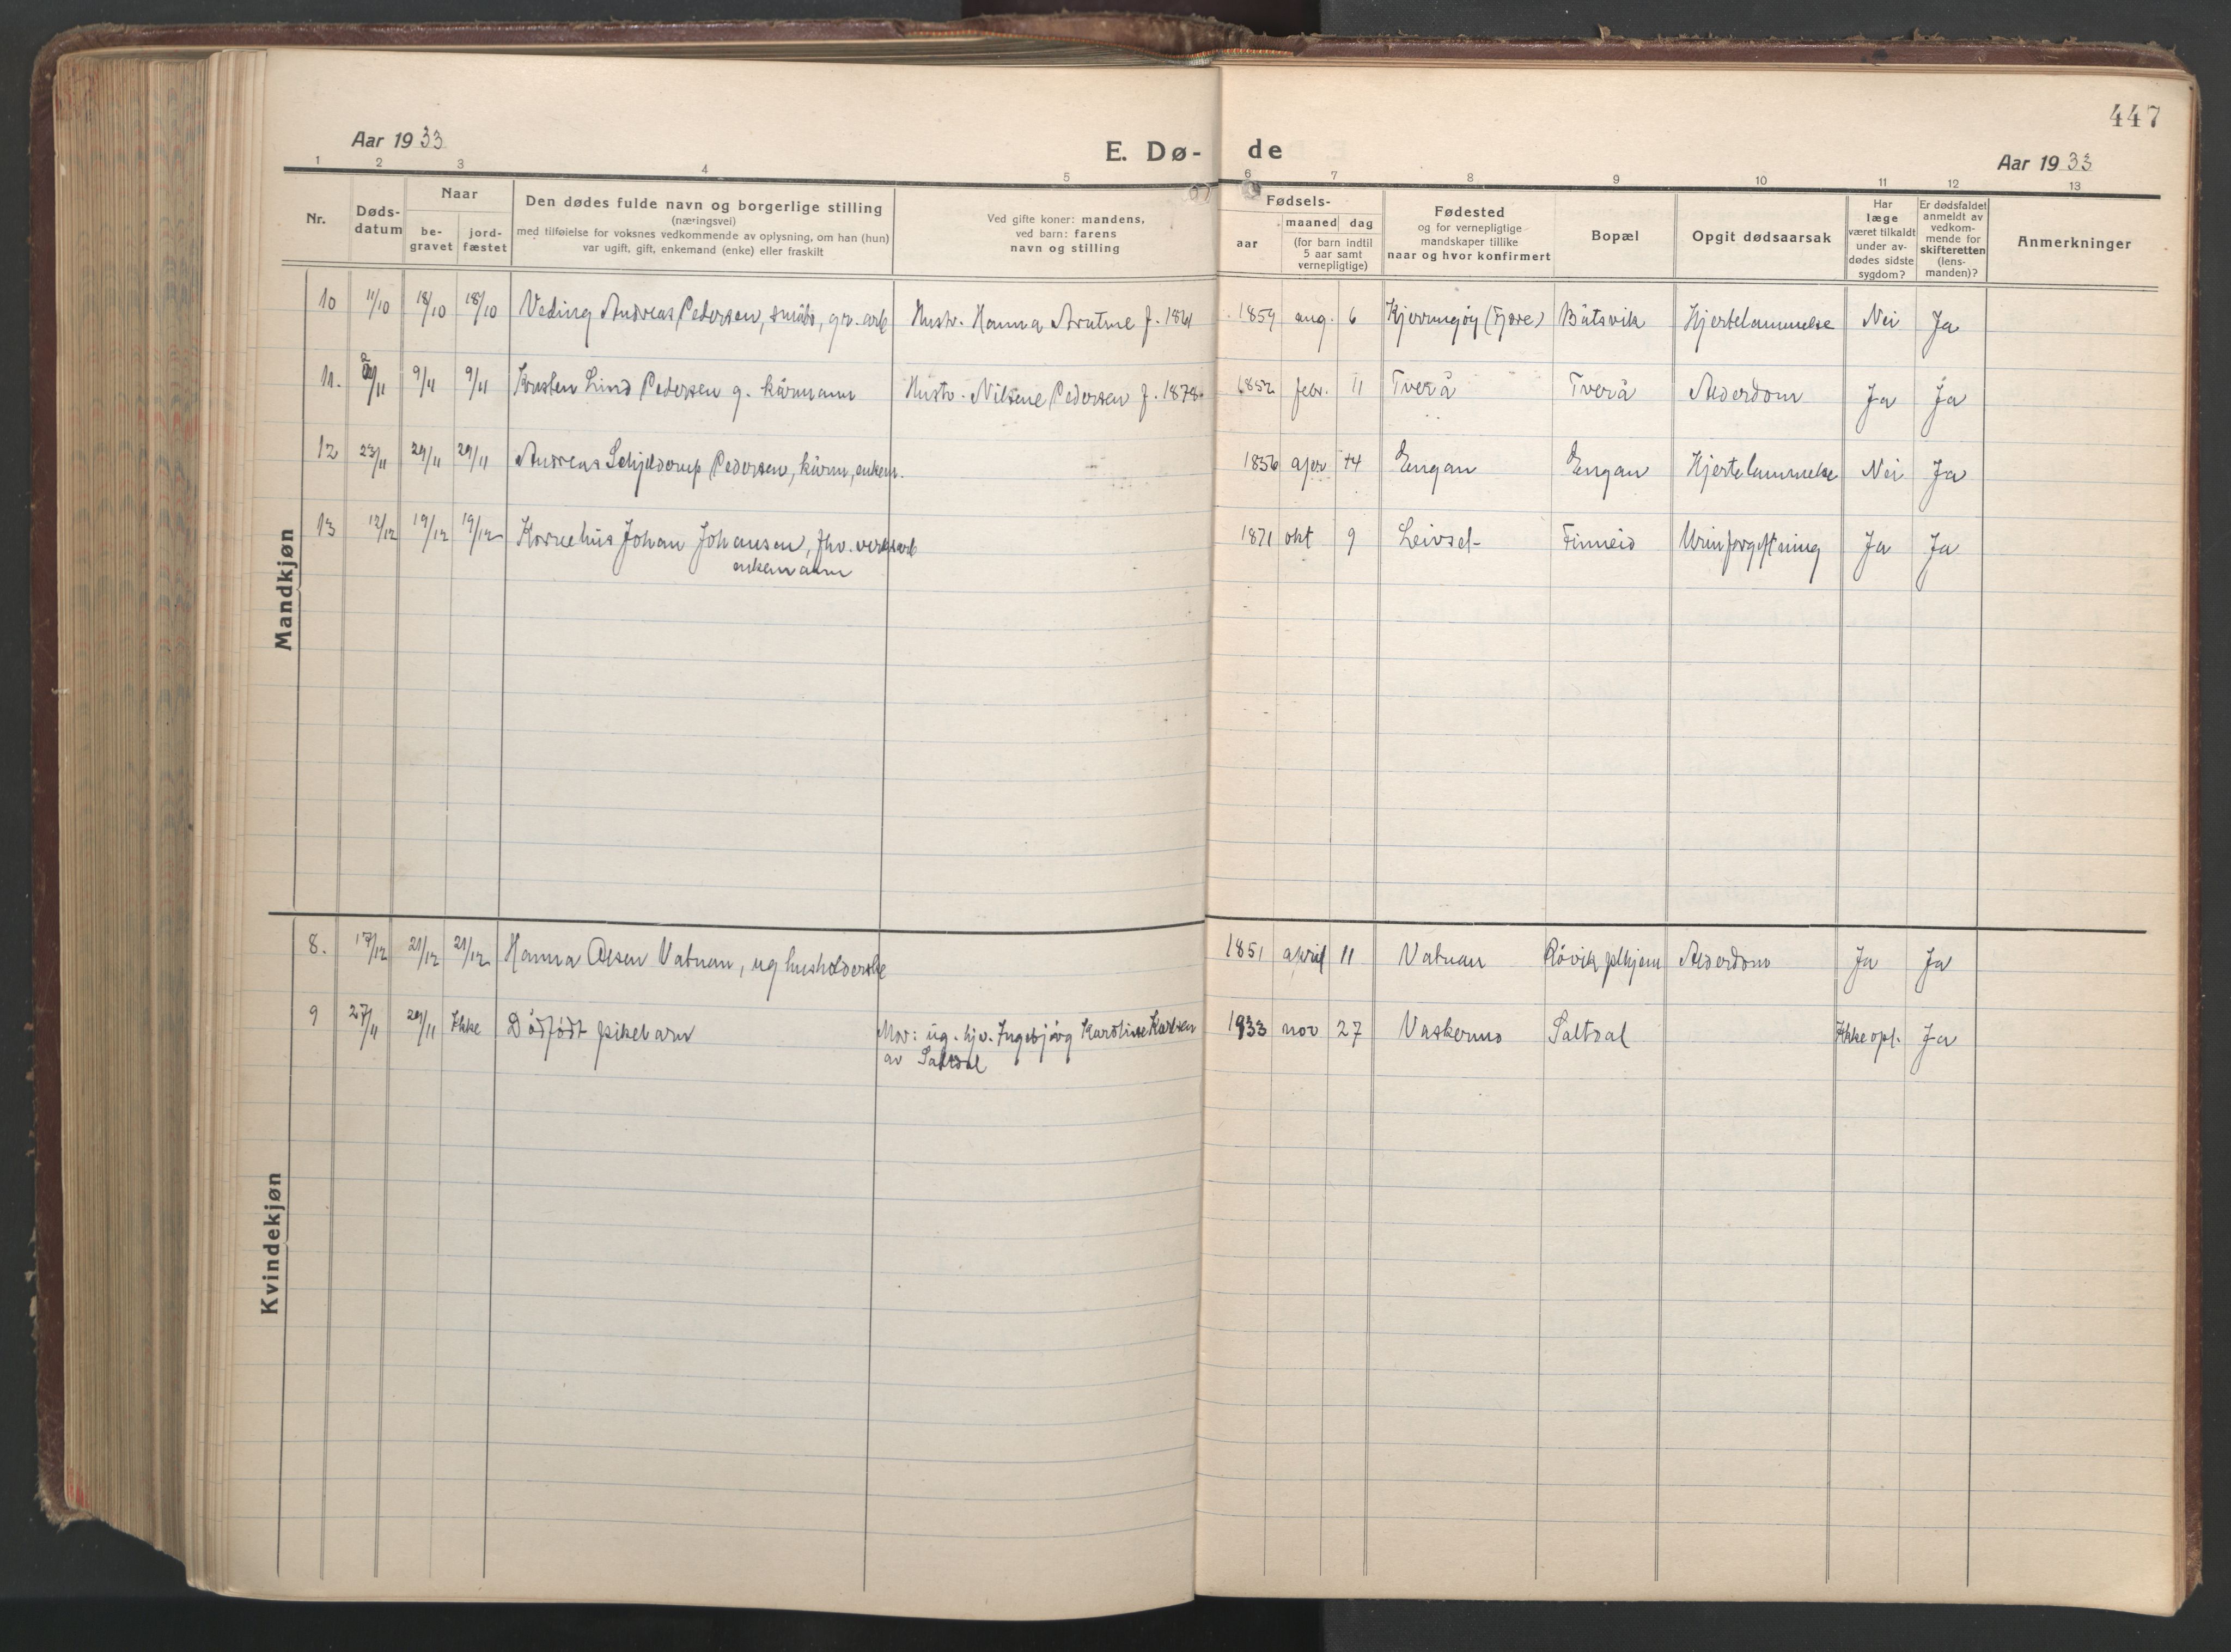 447
Aar 1933
E. Dø-
de
Aar 1933
1 2 3 4 5 6 7 8 9 10 11 12 13
Nr.
Døds-
datum
Naar
be-
gravet
jord-
fæstet
Den dødes fulde navn og borgerlige stilling
(næringsvei)
med tilføielse for voksnes vedkommende av oplysning, om han (hun)
var ugift, gift, enkemand (enke) eller fraskilt
Ved gifte koner: mandens,
ved barn: farens
navn og stilling
Fødsels-
aar
maaned dag
(for barn indtil
5 aar samt
vernepligtige)
Fødested
og for vernepligtige
mandskaper tillike
naar og hvor konfirmert
Bopæl
Opgit dødsaarsak
Har
læge
været tilkaldt
under av-
dødes sidste
sygdom?
Er dødsfaldet
anmeldt av
vedkom-
mende for
skifteretten
(lens-
manden)?
Anmerkninger
Mandkjøn
10 11/10 18/10 18/10 Veding Andreas Pedersen, småbr, gr. arb Hustr. Hanna f. 1861 1859 aug. 6 Kjerringøy (Fjære) Båtsvik Hjertelammelse Nei Ja
11. 2/11 9/11 9/11 Kristen Lind Pedersen g. kårmann Hustr. Nilsine Pedersen f. 1878 1852 febr. 11 Tverå Tverå Alderdom Ja Ja
12 23/11 29/11 29/11 Andreas Schjelderup Pedersen, kårm, enkem. 1856 apr 14 Engan Engan Hjertelammelse Nei Ja
13 12/12 19/12 19/12 Kornelius Johan Johansen, fhv. verksarb 1871 okt 9 Leivset Finneid Urinforgiftning Ja Ja
enkemann
Kvindekjøn
8. 17/12 21/12 21/12 Hanna Olsen Vatnan, ug husholderske 1851 april 11 Vatnan Røvik plhjem Alderdom Ja Ja
9 27/11 29/11 Ikke Dødfødt pikebarn Mor: ug. hj. Ingebjørg Karoline Karlsen 1933 nov 27 Vaskermo Saltdal Ikke opl. Ja
av Saltdal